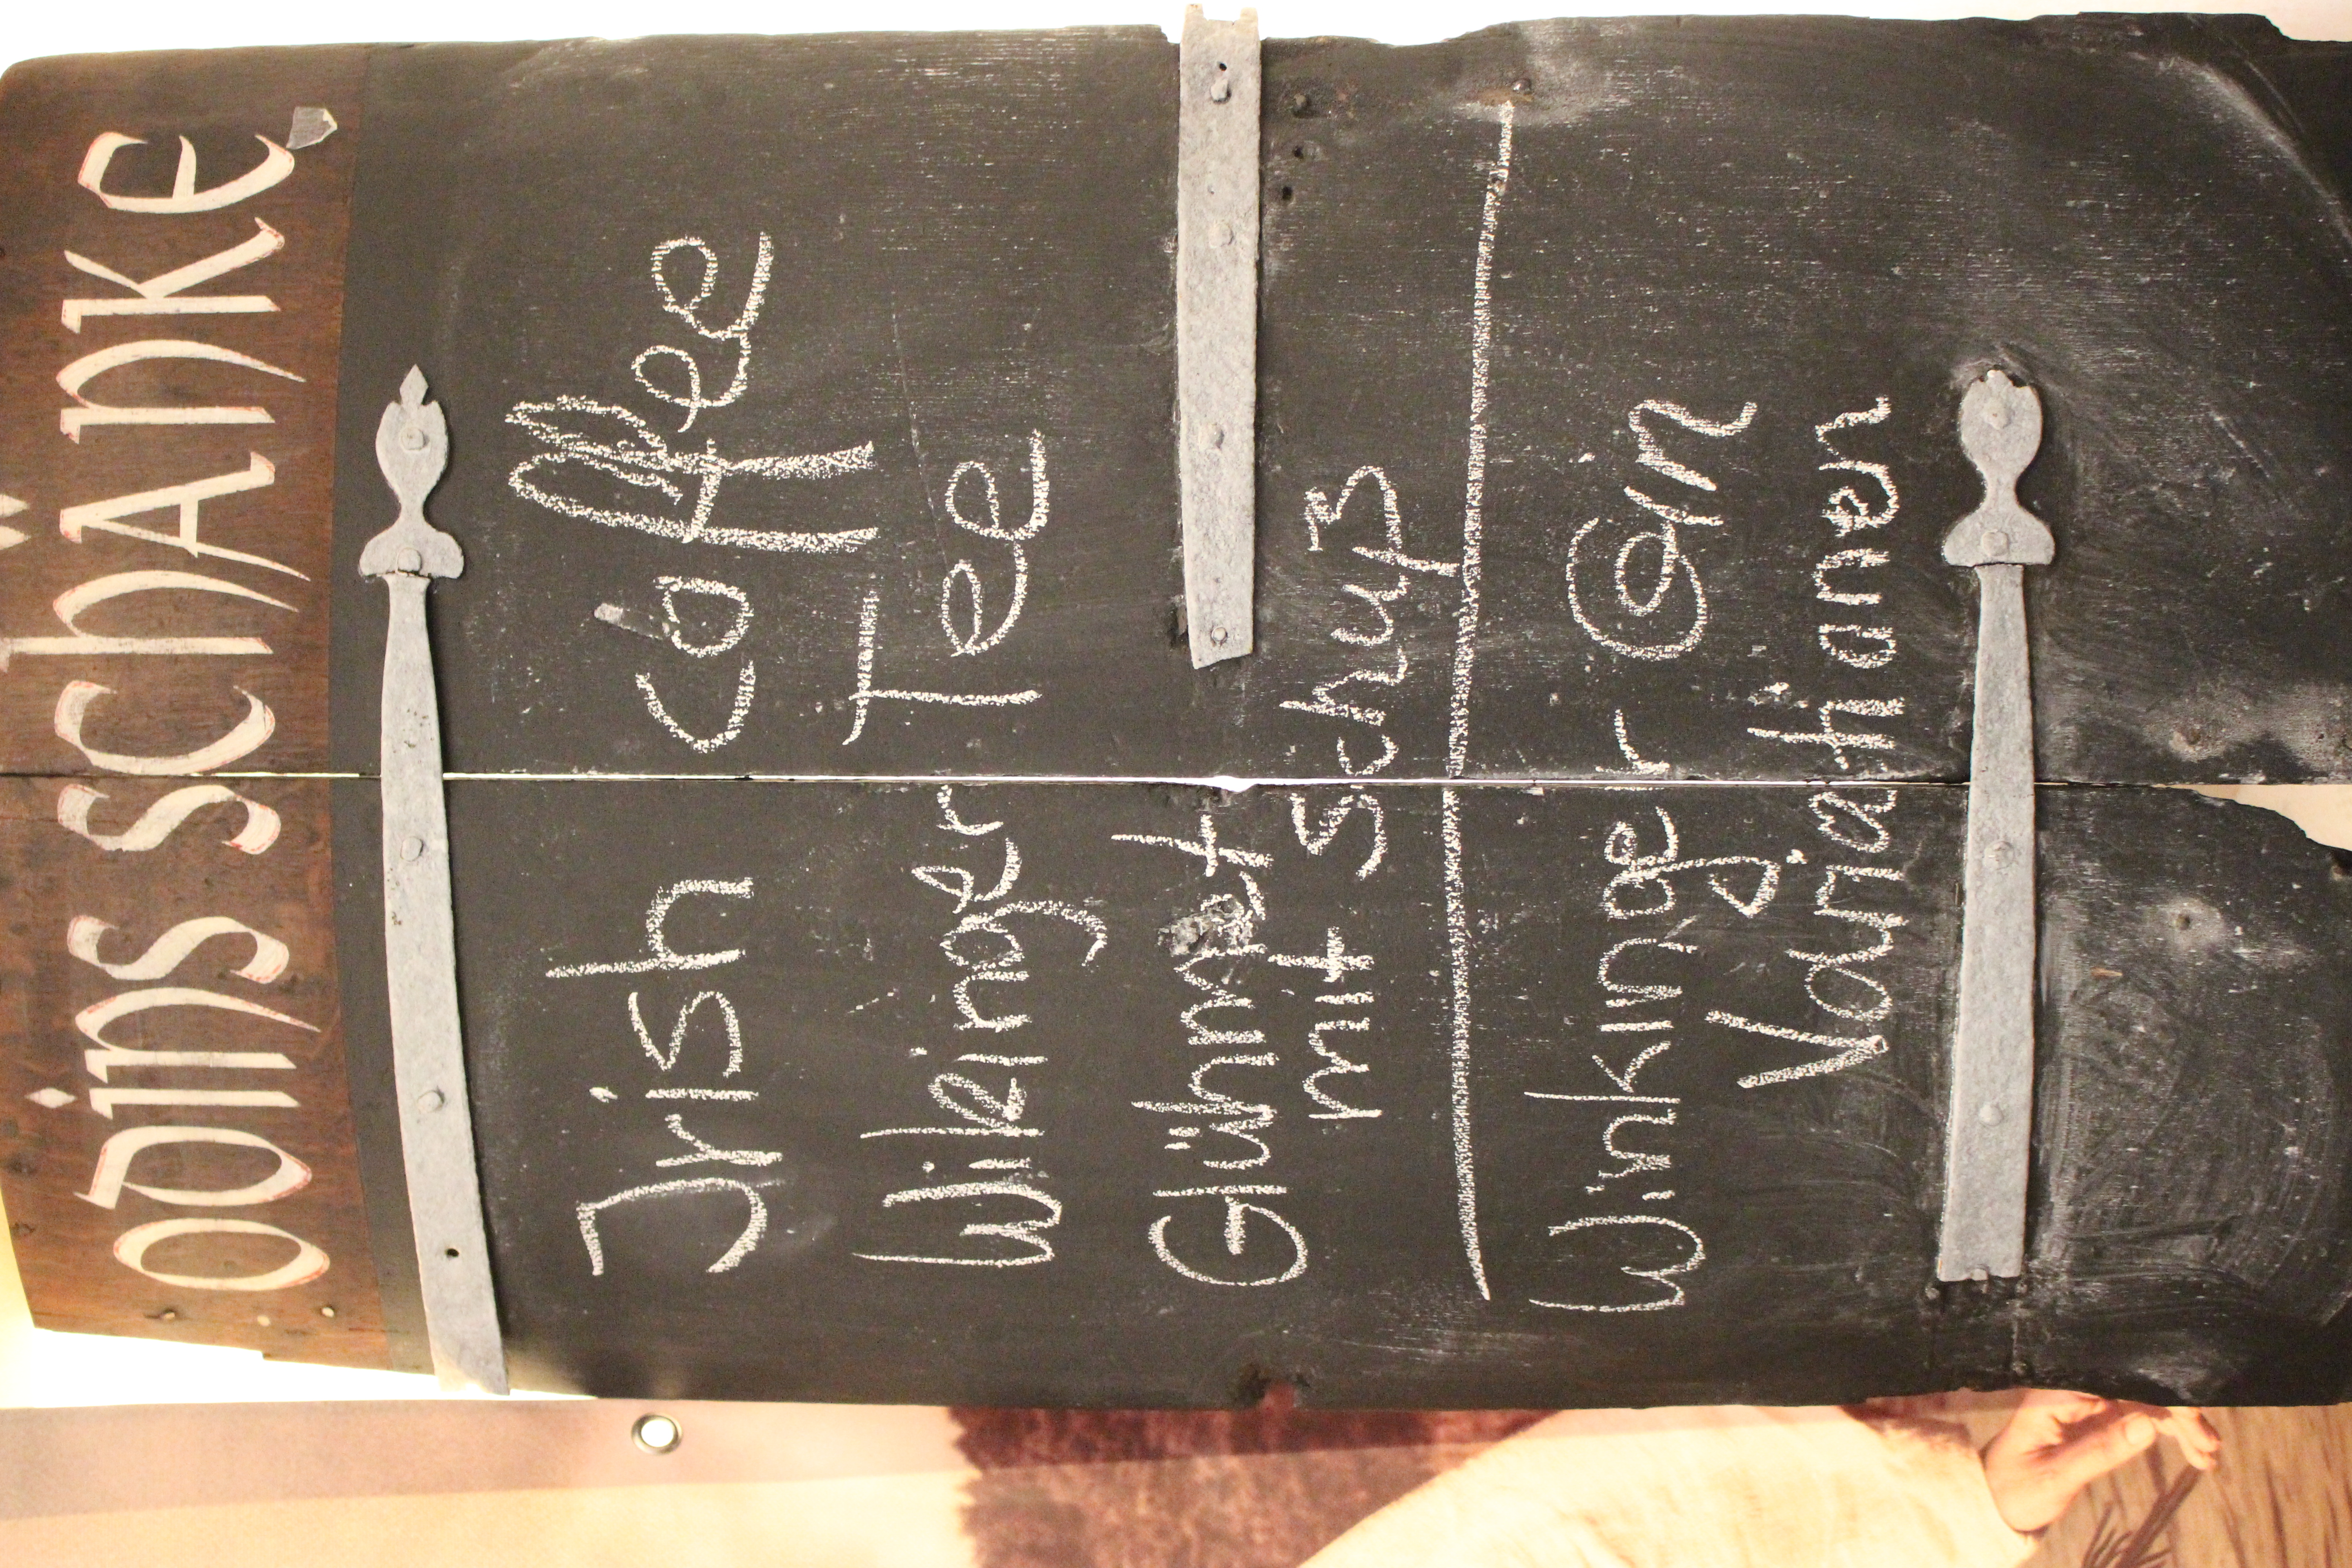 Odins Schänke
Jrish Caffee
Wikinger Tee
Glühmet
mit Schuß
Winkinger Gin
Variationen